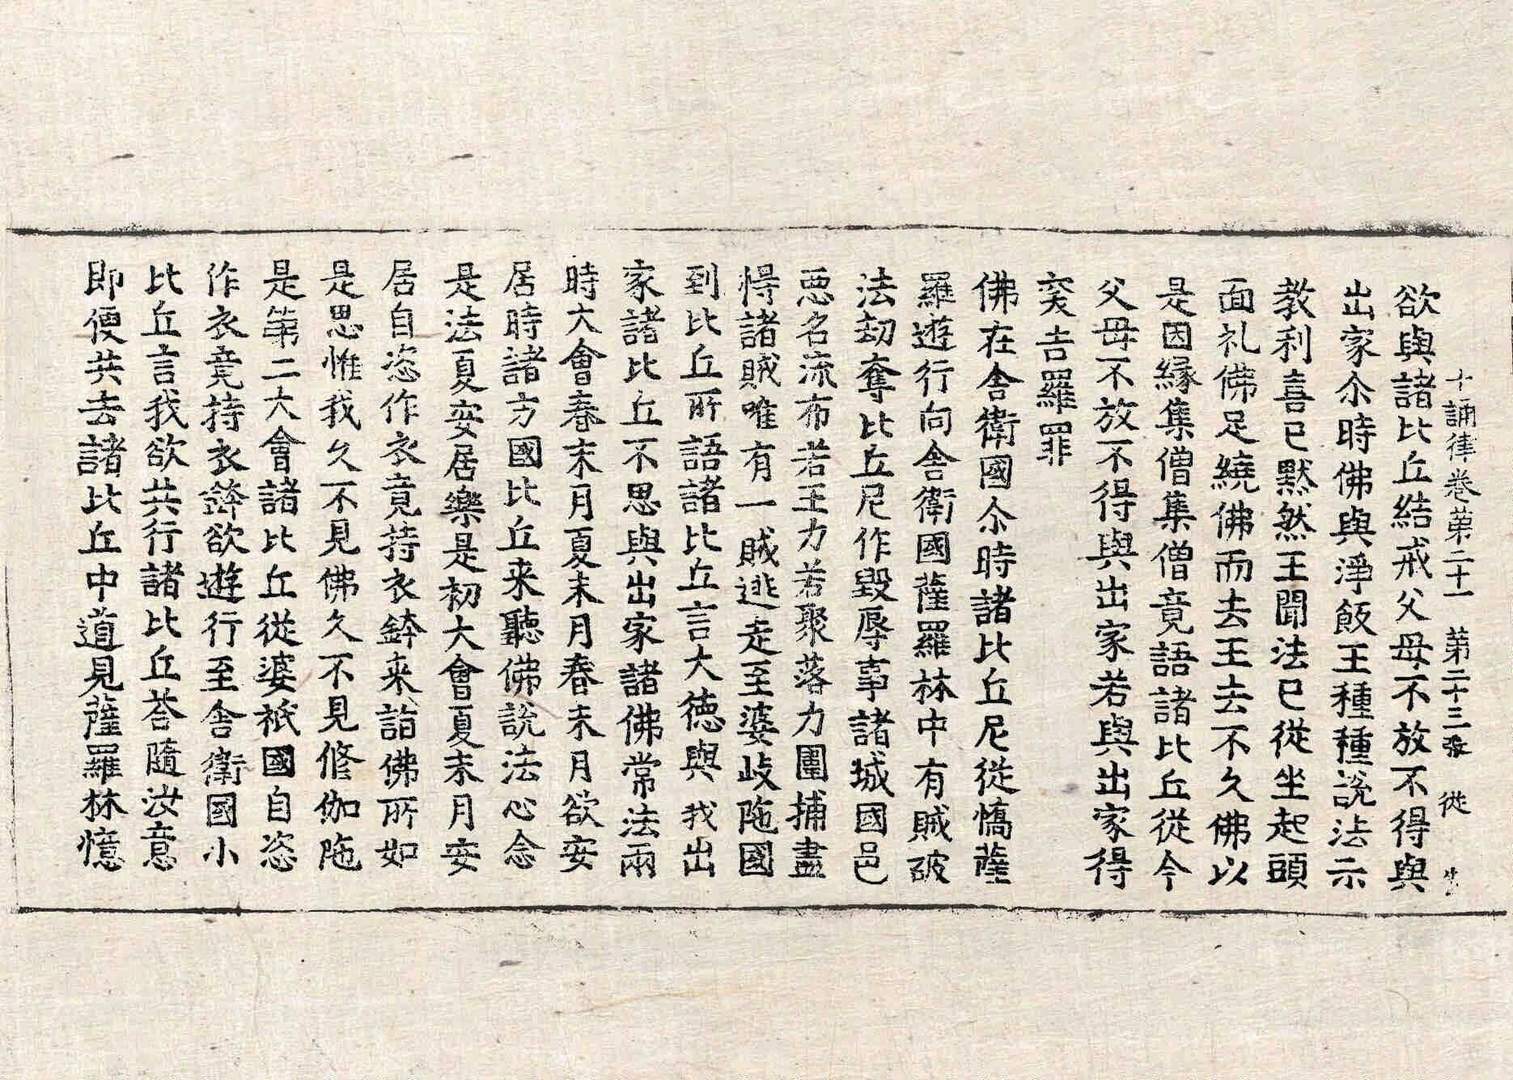 十誦律卷第二十一 第二十三張 従
欲與諸比丘結戒父母不放不得與
出家尒時佛與淨飯王種種說法示
教利喜已黙然王聞法已從坐起頭
面礼佛足繞佛而去王去不久佛以
是因縁集僧集僧竟語諸比丘從今
父母不放不得與出家若與出家得
突吉羅罪
佛在舍衛國尒時諸比丘尼從憍薩
羅遊行向舍衛國薩羅林中有賊破
法劫奪比丘尼作毀辱事諸城國邑
惡名流布若王力若聚落力圍捕盡
得諸賊唯有一賊逃走至婆岐陁國
到比丘所語諸比丘言大德與我出
家諸比丘不思與出家諸佛常法兩
時大會春末月夏末月春末月欲安
居時諸方國比丘来聽佛說法心念
是法夏安居樂是初大會夏末月安
居自恣作衣竟持衣鉢来詣佛所如
是思惟我久不見佛久不見修伽陁
是第二大會諸比丘從婆祇國自恣
作衣竟持衣鉢欲遊行至舍衛國小
比丘言我欲共行諸比丘荅隨汝意
即便共去諸比丘中道見薩羅林憶